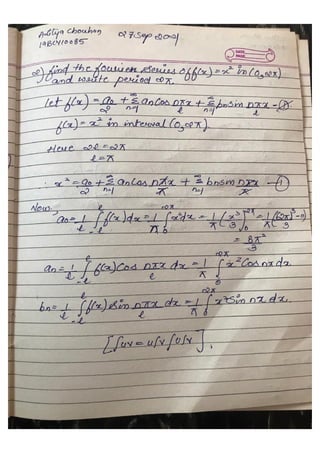 Aditya Chouhan
19BCY10085
27 Sep 2021
DATE
PAGE
Q) find the fourier series of f(x) = x² in (0,2π)
and write period 2π.
let f(x) = a₀/2 + Σ_{n=1}^{∞} an cos nπx/l + Σ_{n=1}^{∞} bn sin nπx/l -
f(x) = x² in interval (0,2π)
Here 2l = 2π
l = π
∴ x² = a₀/2 + Σ_{n=1}^{∞} an cos nπx/π + Σ_{n=1}^{∞} bn sin nπx/π - ①
Now,
a₀ = 1/l ∫_{-l}^{l} f(x) dx = 1/π ∫_0^{2π} x² dx = 1/π (x³/3)_0^{2π} = 1/π ((2π)³/3 - 0)
= 8π²/3
an = 1/l ∫_{-l}^{l} f(x) cos nπx/l dx = 1/π ∫_0^{2π} x² cos nx dx
bn = 1/l ∫_{-l}^{l} f(x) sin nπx/l dx = 1/π ∫_0^{2π} x² sin nx dx.
[∫uv = u∫v ∫v∫v].